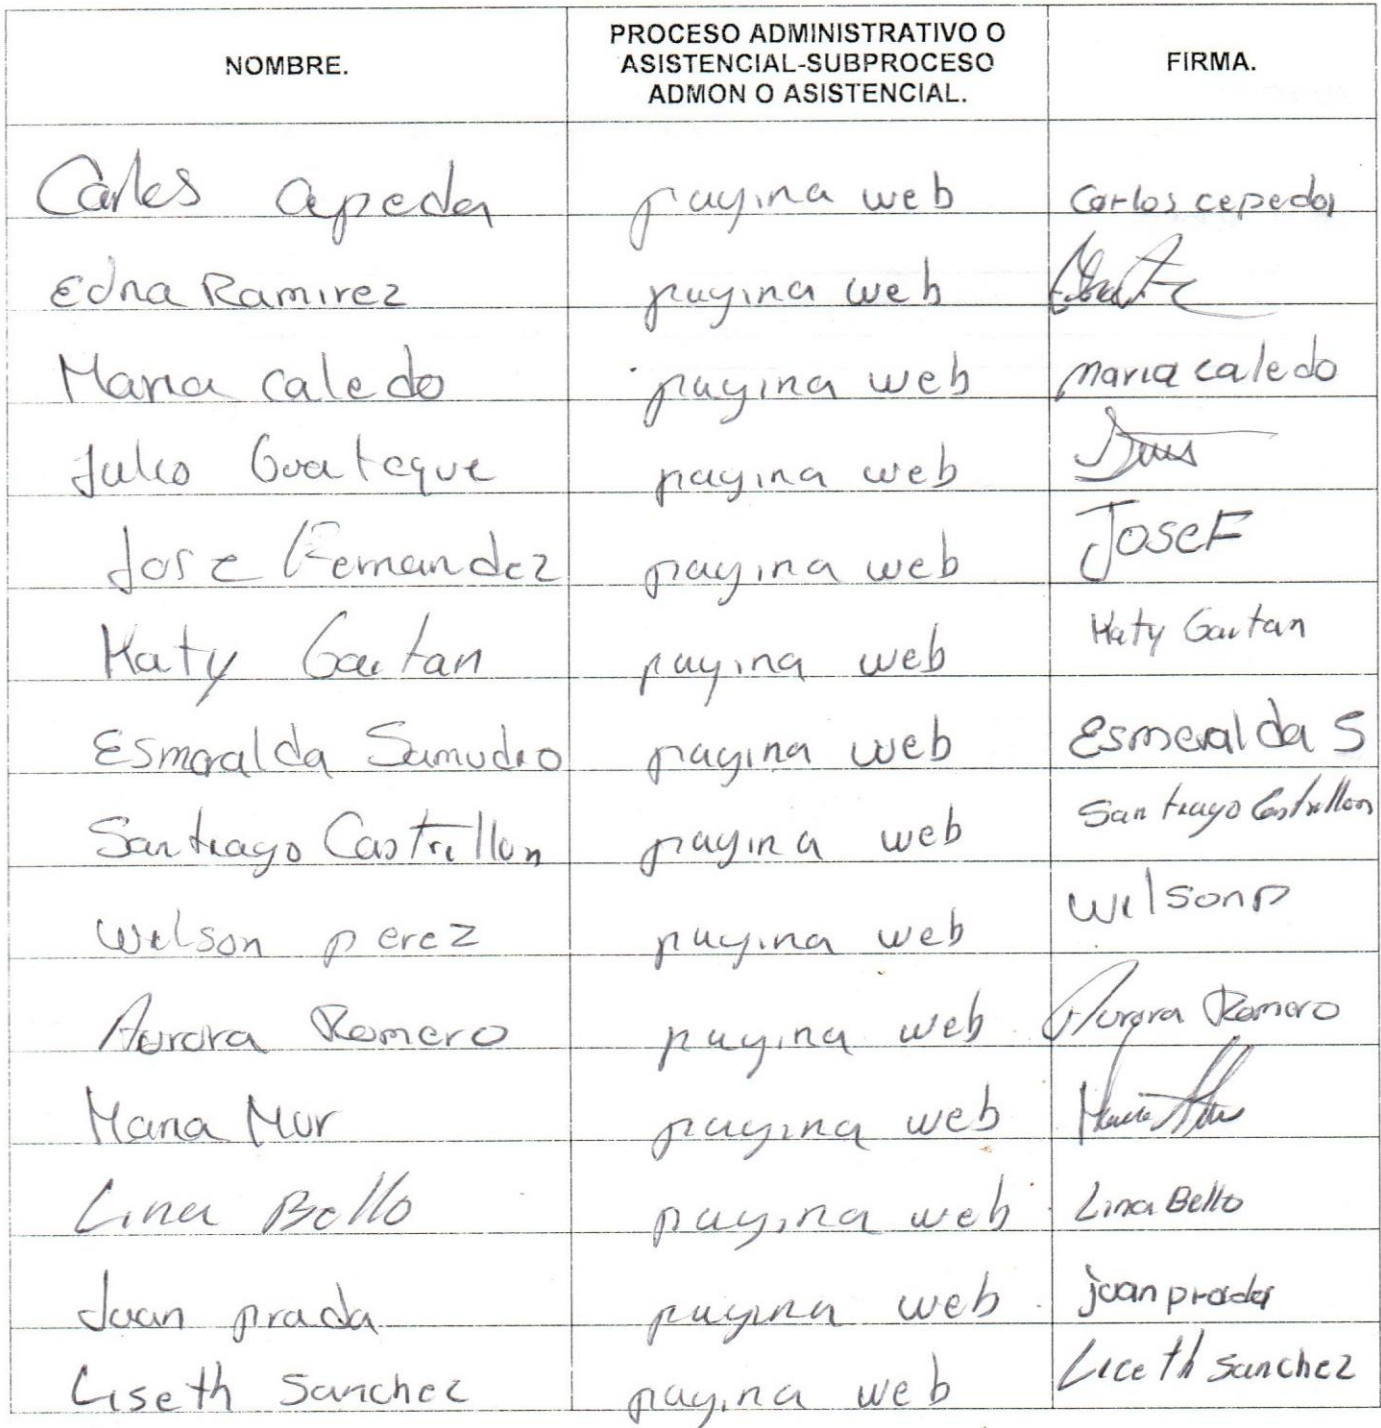 NOMBRE. PROCESO ADMINISTRATIVO O ASISTENCIAL-SUBPROCESO ADMON O ASISTENCIAL. FIRMA.
Carlos Cepeda pagina web Carlos cepeda
Edna Ramirez pagina web
Maria Caledo pagina web maria caledo
Julio Guateque pagina web
Jose Fernandez pagina web JoseF
Katy Gaitan pagina web Katy Gaitan
Esmeralda Samudio pagina web Esmeralda S
Santiago Castrillon pagina web Santiago Castrillon
Wilson perez pagina web WilsonP
Aurora Romero pagina web Aurora Romero
Maria Mur pagina web Maria
Lina Bello pagina web Lina Bello
Juan prada pagina web juan prada
Liseth Sanchez pagina web Liceth Sanchez